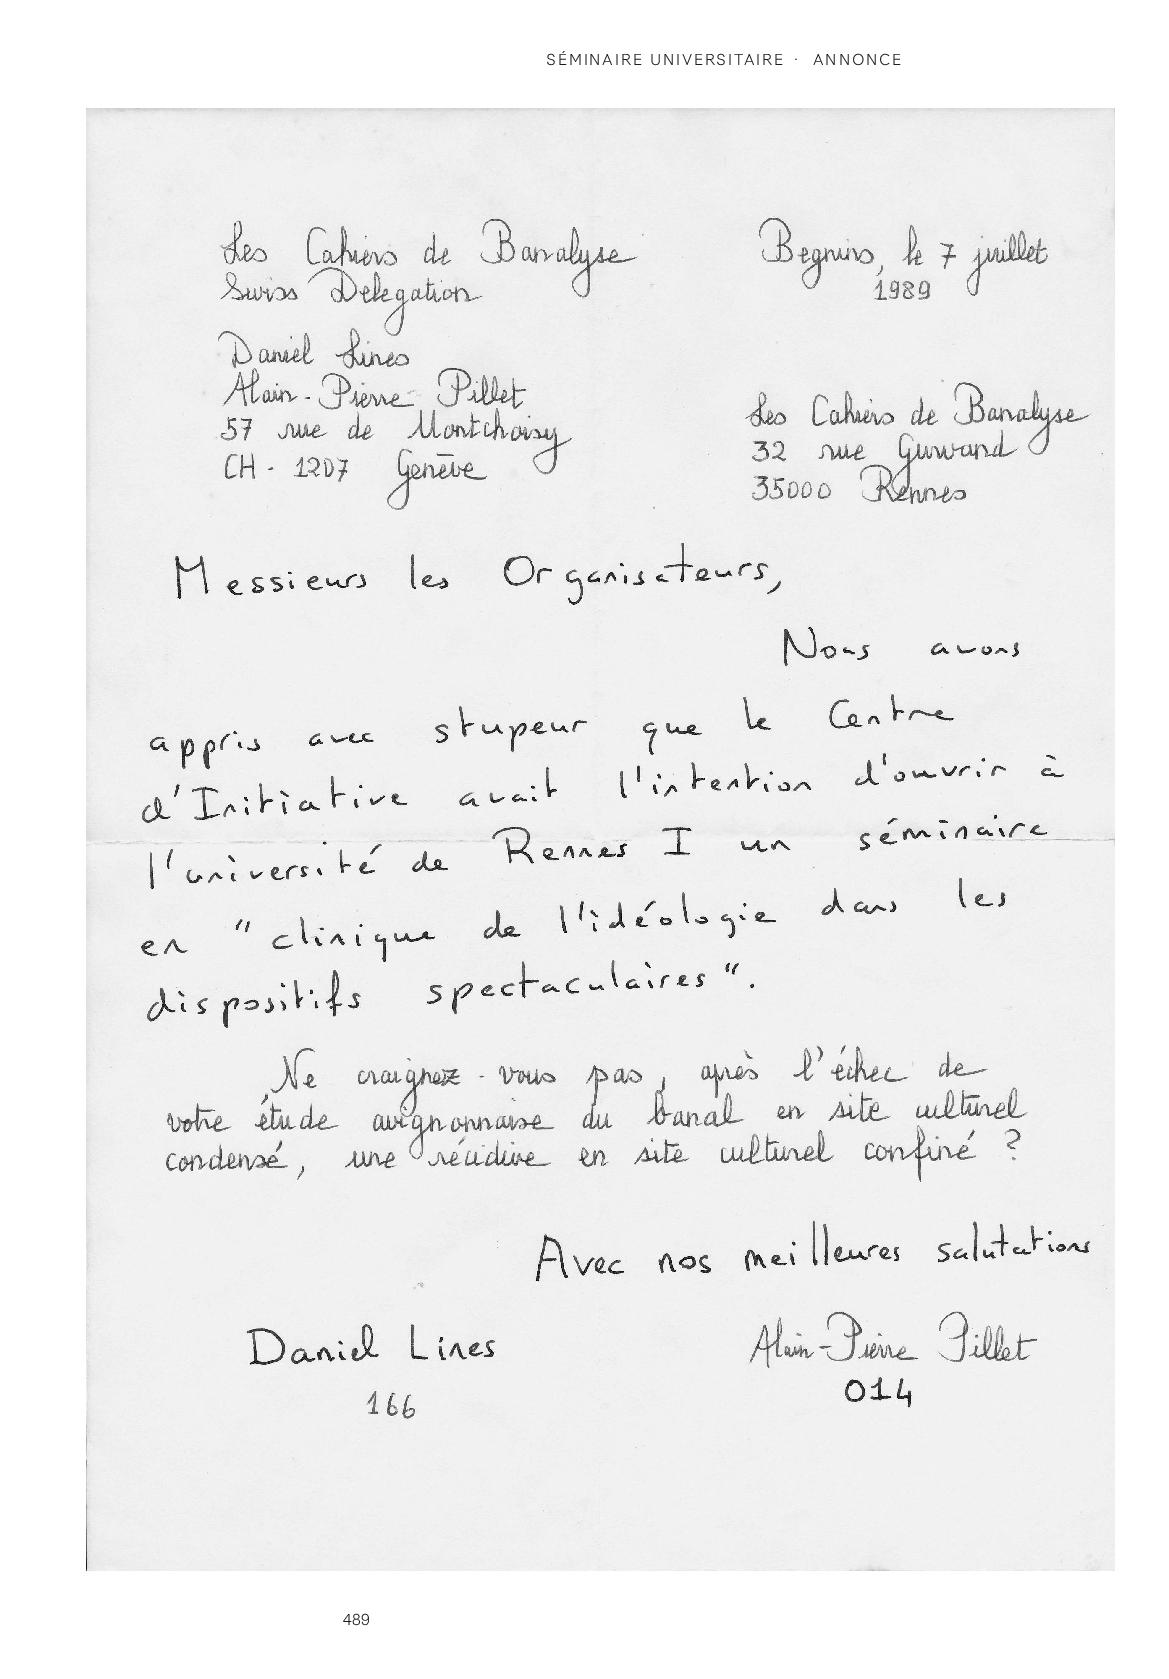 SÉMINAIRE UNIVERSITAIRE · ANNONCE
Les Cahiers de Banalyse
Swiss Delegation
Daniel Lines
Alain-Pierre Pillet
57 rue de Montchoisy
CH - 1207 Genève
Begnins, le 7 juillet
1989
Les Cahiers de Banalyse
32 rue Gurvand
35000 Rennes
Messieurs les Organisateurs,
Nous avons
appris avec stupeur que le Centre
d'Initiative avait l'intention d'ouvrir à
l'université de Rennes I un séminaire
en "clinique de l'idéologie dans les
dispositifs spectaculaires".
Ne craignez-vous pas, après l'échec de
votre étude avignonnaise du banal en site culturel
condensé, une récidive en site culturel confiné ?
Avec nos meilleures salutations
Daniel Lines
166
Alain-Pierre Pillet
014
489